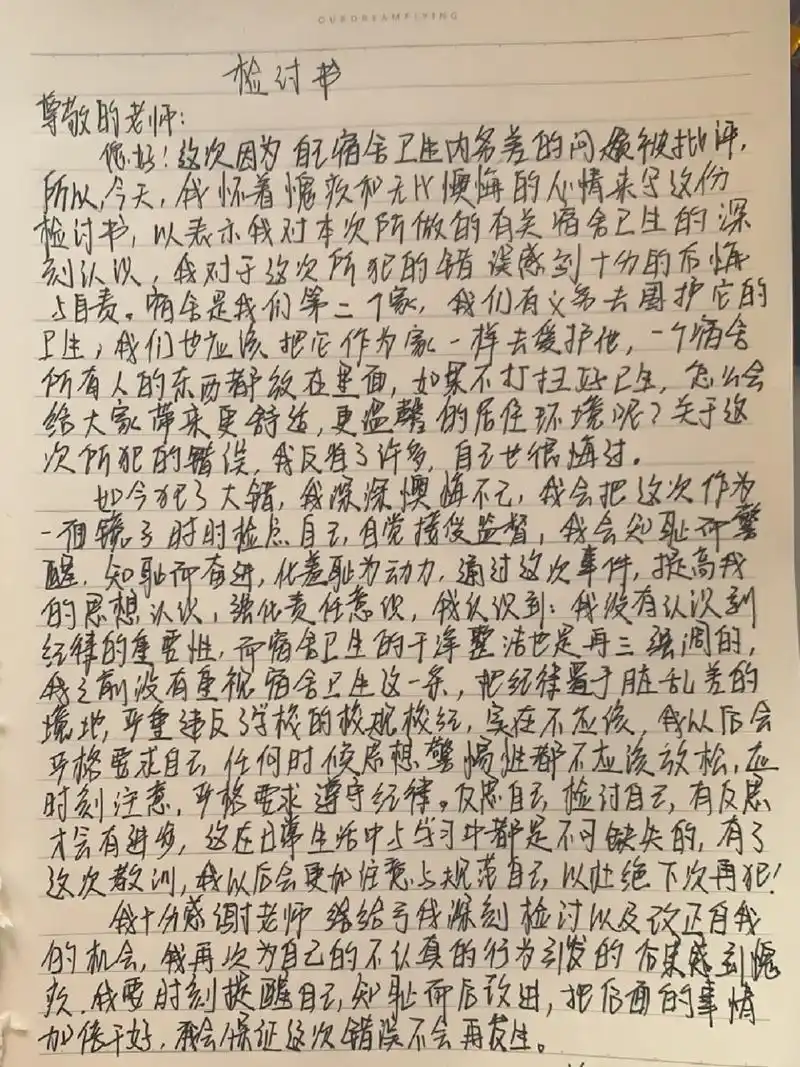 OURDREAMFLYING
检讨书
尊敬的老师：
您好！这次因为自己宿舍卫生内务差的问题被批评，
所以，今天，我怀着愧疚和无比懊悔的心情来写这份
检讨书，以表示我对本次所做的有关宿舍卫生的深
刻认识，我对于这次所犯的错误感到十分的后悔
与自责。宿舍是我们第二个家，我们有义务去围护它的
卫生，我们也应该把它作为家一样去爱护他，一个宿舍
所有人的东西都放在里面，如果不打扫好卫生，怎么会
给大家带来更舒适，更温馨的居住环境呢？关于这
次所犯的错误，我反省了许多，自己也很悔过。
如今犯了大错，我深深懊悔不已，我会把这次作为
一面镜子时时检点自己，自觉接受监督，我会知耻而警
醒，知耻而奋进，化羞耻为动力，通过这次事件，提高我
的思想认识，强化责任意识，我认识到：我没有认识到
纪律的重要性，而宿舍卫生的干净整洁也是再三强调的，
我之前没有重视宿舍卫生这一条，把纪律置于脏乱差的
境地，严重违反了学校的校规校纪，实在不应该，我以后会
严格要求自己，任何时候思想警惕性都不应该放松，应
时刻注意，严格要求遵守纪律。反思自己，检讨自己，有反思
才会有进步，这在日常生活中与学习中都是不可缺失的，有了
这次教训，我以后会更加注意与规范自己，以杜绝下次再犯！
我十分感谢老师给我深刻检讨以及改正自我
的机会，我再次为自己的不认真的行为引发的后果感到愧
疚，我要时刻提醒自己，知耻而后改进，把后面的事情
加倍干好，我会保证这次错误不会再发生。